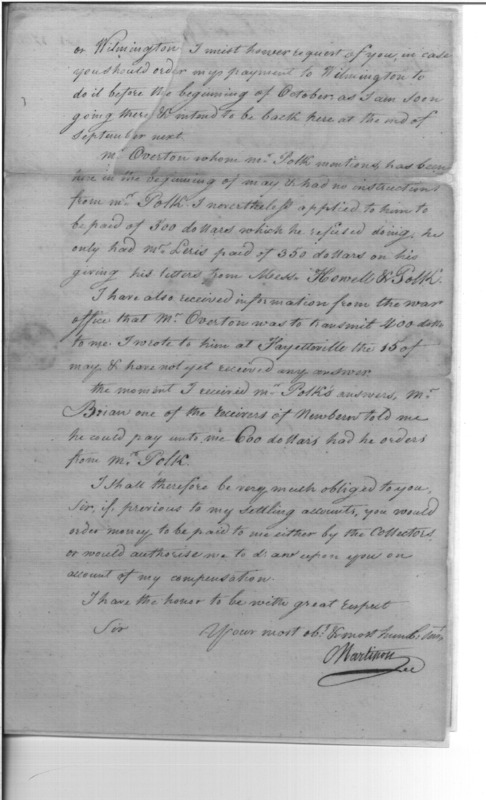 or Wilmington. I must however request of you, in case
you should order my payment to Wilmington to
do it before the beginning of October, as I am soon
going there & intend to be back here at the end of
september next.
Mr. Overton whom mr. Polk mentions, has been
here in the beginning of may & had no instructions
from mr. Polk. I nevertheless applied to him to
be paid of 500 dollars which he refused doing. he
only had Mr. paid of 350 dollars on his
giving his letters from Mess. Howell & Polk.
I have also received information from the war
office that Mr. Overton was to transmit 400 dolls
to me. I wrote to him at Fayetteville the 15 of
may, & have not yet received any answer
the moment I received mr. Polk's answers, Mr.
Brian one of the receivers of Newbern told me
he could pay unto me 600 dollars had he orders
from Mr. Polk.
I shall therefore be very much obliged to you
Sir, if, previous to my settling accounts, you would
order money to be paid to me either by the Collectors
or would authorise me to draw upon you on
account of my compensation.
I have the honor to be with great respect
Sir Your most obt. & most humb. Servt.
Martinon